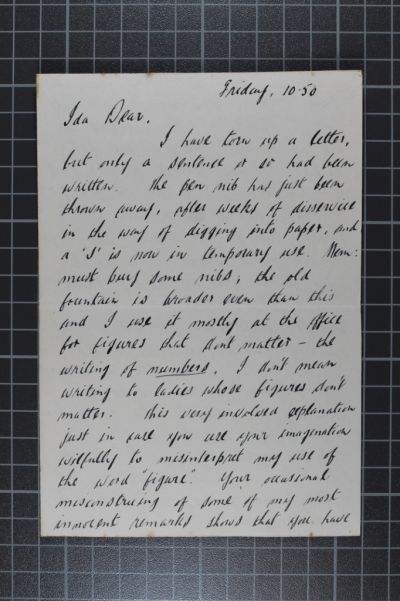 Friday, 10.50
Ida Dear,
I have torn up a letter,
but only a sentence or so had been
written. The pen nib has just been
thrown away, after weeks of disservice
in the way of digging into paper, and
a 'J' is now in temporary use. Mem:
must buy some nibs; the old
fountain is broader even than this
and I use it mostly at the office
for figures that don't matter – the
writing of numbers. I don't mean
writing to ladies whose figures don't
matter. This very involved explanation
just in case you use your imagination
wilfully to misinterpret my use of
the word "figure". Your occasional
misconstruing of some of my most
innocent remarks shows that you have